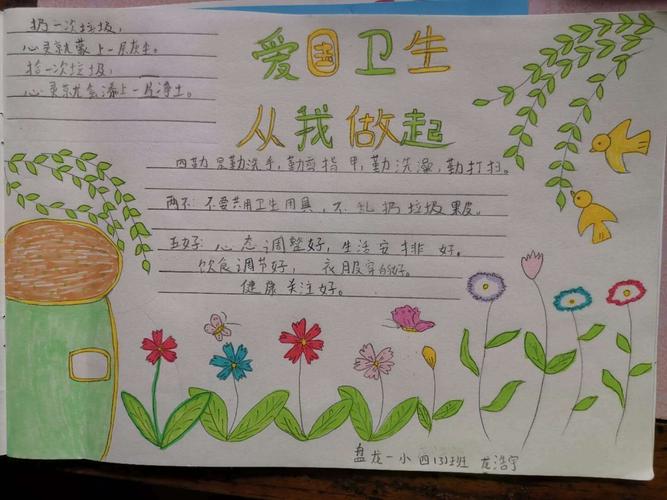 扔一次垃圾,
心灵就蒙上一层灰尘。
拾一次垃圾,
心灵就会添上一片净土。
爱国卫生
从我做起
四勤是勤洗手,勤剪指甲,勤洗澡,勤打扫。
两不:不要共用卫生用具,不乱扔垃圾果皮。
五好:心态调整好,生活安排好。
饮食调节好,衣服穿的好。
健康关注好。
盘龙一小四(3)班 龙浩宇